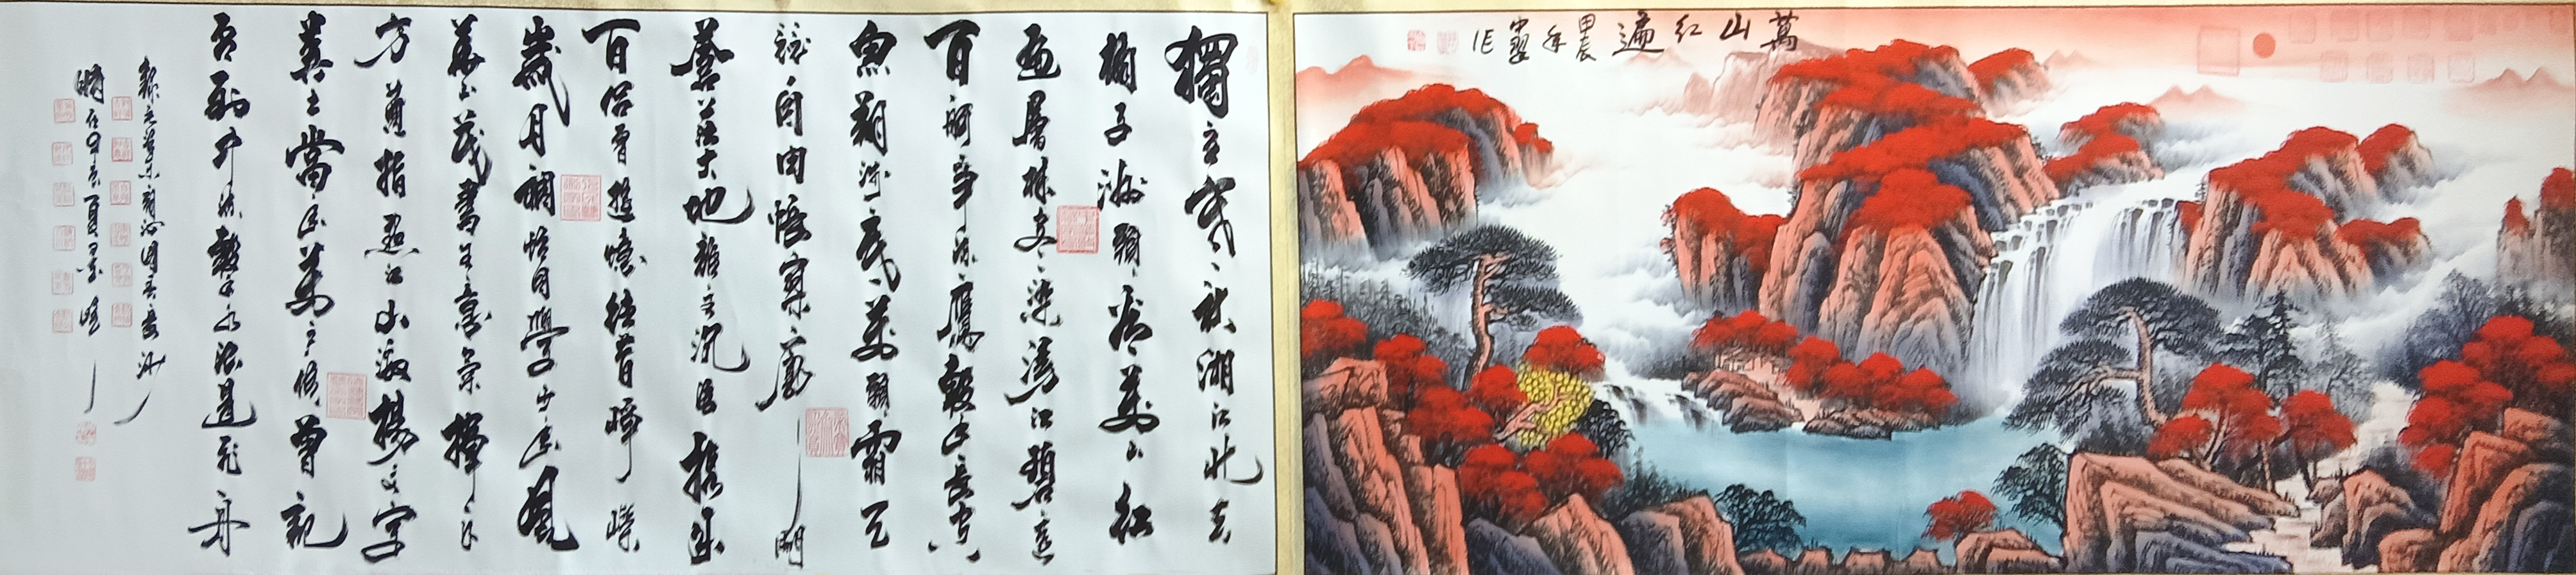 萬山红遍
甲辰
年
作
獨立寒秋湘江北去
橘子洲頭看萬山红
遍層林盡染漫江碧透
百舸争流鷹擊長空
魚翔淺底萬類霜天
競自由悵寥廓問
蒼茫大地誰主沉浮携来
百侣曾遊憶往昔崢嶸
歲月稠恰同學少年風
華正茂書生意氣揮斥
方遒指點江山激揚文字
糞土當年萬户侯曾記
否到中流擊水浪遏飛舟
錄毛澤東詞沁園春長沙
時在甲辰夏墨